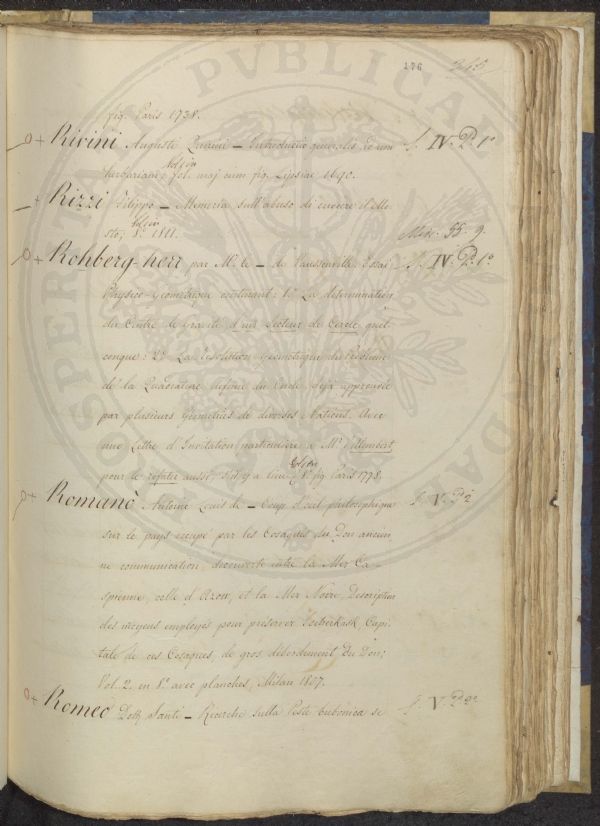 176
fig. Paris 1738.
Rivini Augusti Quirini – Introductio generalis in rem
herbariam: fol. maj. cum fig. Lipsiae 1690. IV. 1°
Rizzi Filippo – Memoria sull'abuso di cuocere il Mo
sto; 8° 1811. Misc. 55. 9.
Rohberg-herr par Mr. le – de Vausenville. Essai IV. 1°
Physico-Géométrique contenant: 1° La détermination
du Centre de Gravité d'un Secteur de Cercle quel
conque: 2° La résolution Géométrique du Problème
de la Quadrature définie du Cercle, déjà approuvée
par plusieurs Géomètres de diverses Nations. Avec
une Lettre d'Invitation particulière à Mr. d'Alembert,
pour le réfuter aussi, s'il y a lieu: 8° fig. Paris 1778.
Romanò Antoine Louis de – Coup d'oeil philosophique V. 2
sur le pays occupé par les Cosaques du Don ancien
ne communication, découverte entre la Mer Ca-
spienne, celle d'Azow, et la Mer Noire. Description
des moyens employés pour préserver Tscherkask, Capi
tale de ces Cosaques, de gros débordement du Don;
Vol. 2. en 8° avec planches, Milan 1807.
Romeo Dott. Santi – Ricerche sulla Peste bubonica se V.